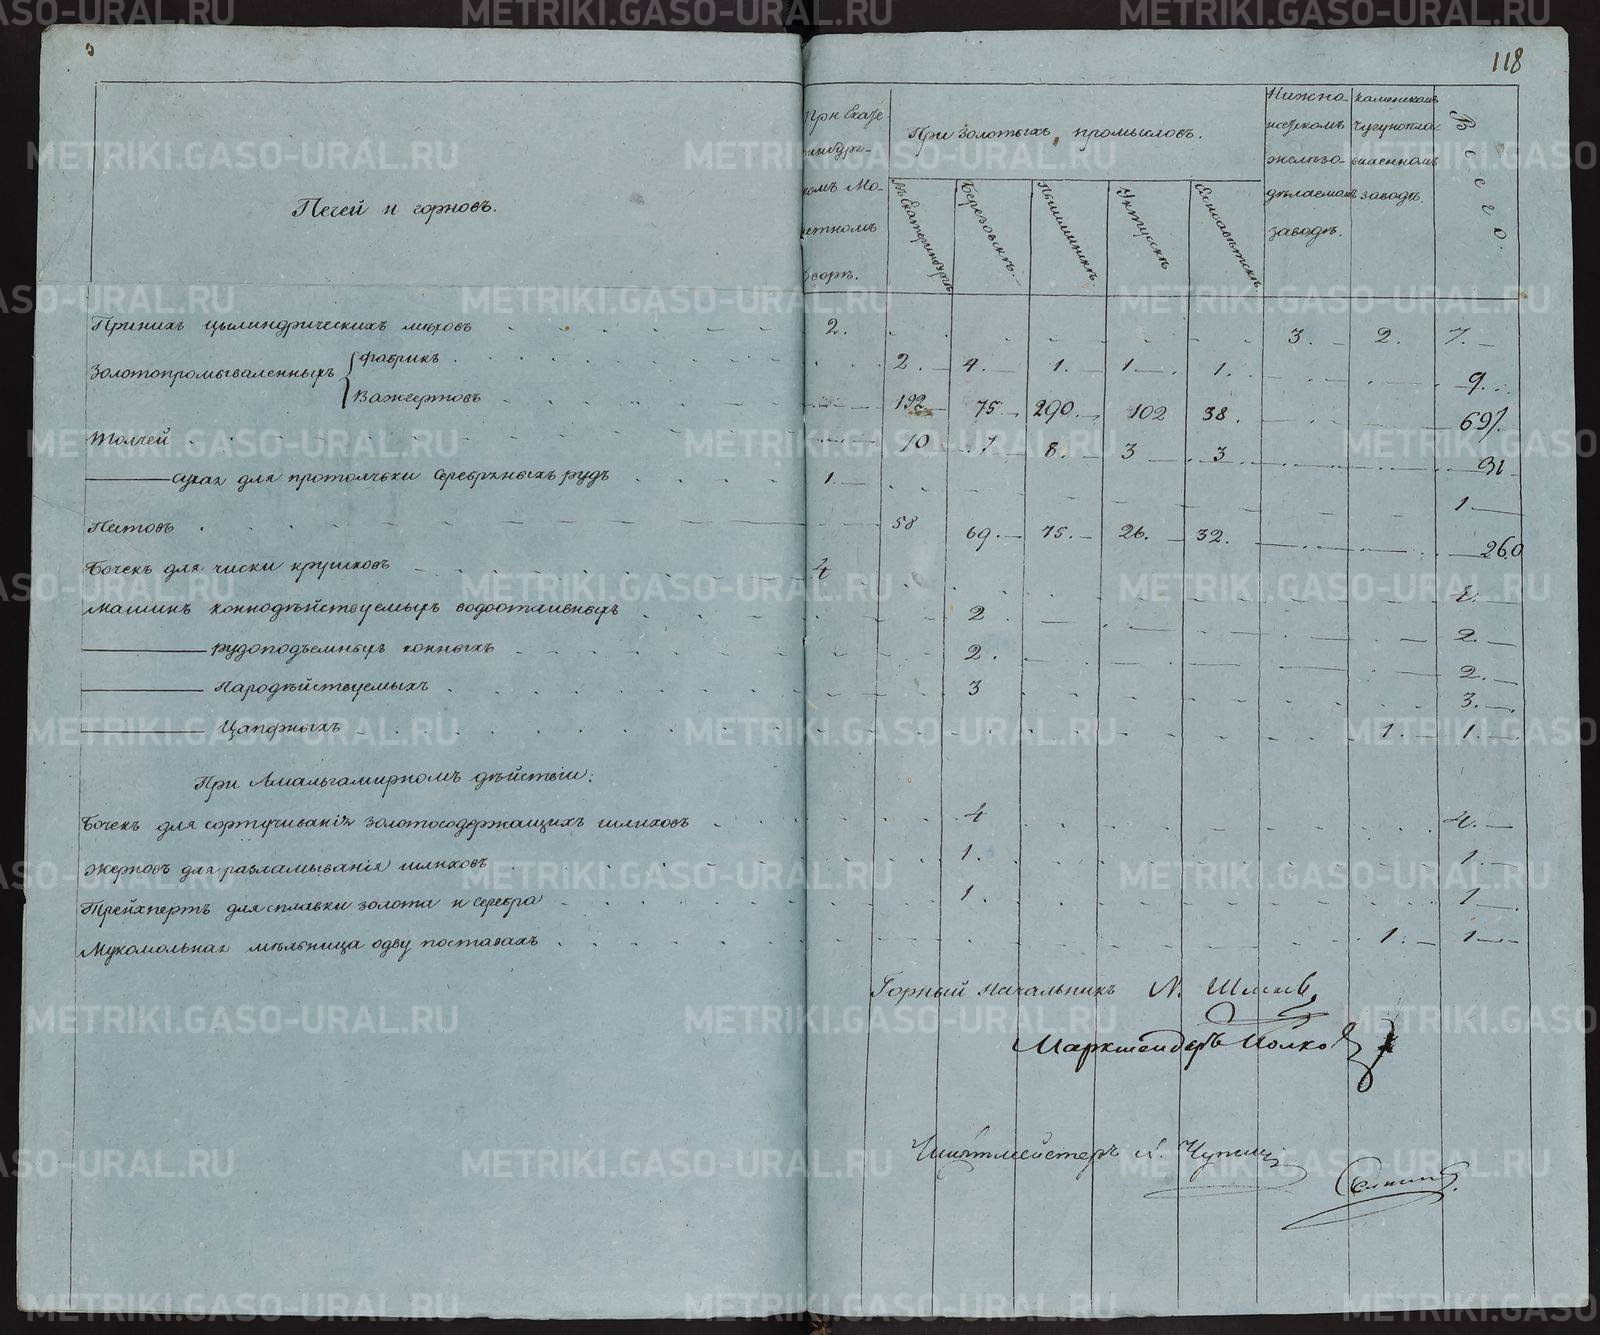 118
Печей и горновъ.
При Екате
ринбург-
комъ Мо-
нетномъ
Дворѣ.
При золотыхъ промыслов.
въ Екатеринбургѣ
Березовскѣ.
Пышминскѣ.
Уктусскѣ
Нижно-
исетскомъ
желѣзо-
дѣлаемомъ
заводѣ.
Каменскомъ
Чугунопла-
виленномъ
заводѣ.
Всего.
При нихъ цылиндрическихъ мѣховъ 2. 3. 2. 7.
Золотопромываленныхъ { Фабрикъ 2. 4. 1. 1 1. 9.
Вашгертовъ 192 75 290. 102 38. 697.
Толчей 10 7 8. 3 3 31
сухая для протолчьки серебряныхъ рудъ 1. 1
Пестовъ 58 69. 75. 26. 32. 260
Бочекъ для чиски крушковъ 4 4.
Машинъ коннодѣйствуемыхъ водоотливныхъ 2 2.
рудоподъемныхъ конныхъ 2. 2.
Пародѣйствуемыхъ 3 3.
Цапфныхъ 1. 1.
При Амальгамирномъ дѣйствіи:
Бочекъ для сортучиванія золотосодержащихъ шлиховъ 4 4.
Жерновъ для разламыванія шлиховъ 1. 1.
Трейхпертъ для сплавки золота и серебра 1. 1
Мукомольная мѣльница одву поставахъ 1. 1
Горный Начальникъ
Маркшейдеръ Волков
Шихтмейстеръ
METRIKI.GASO-URAL.RU